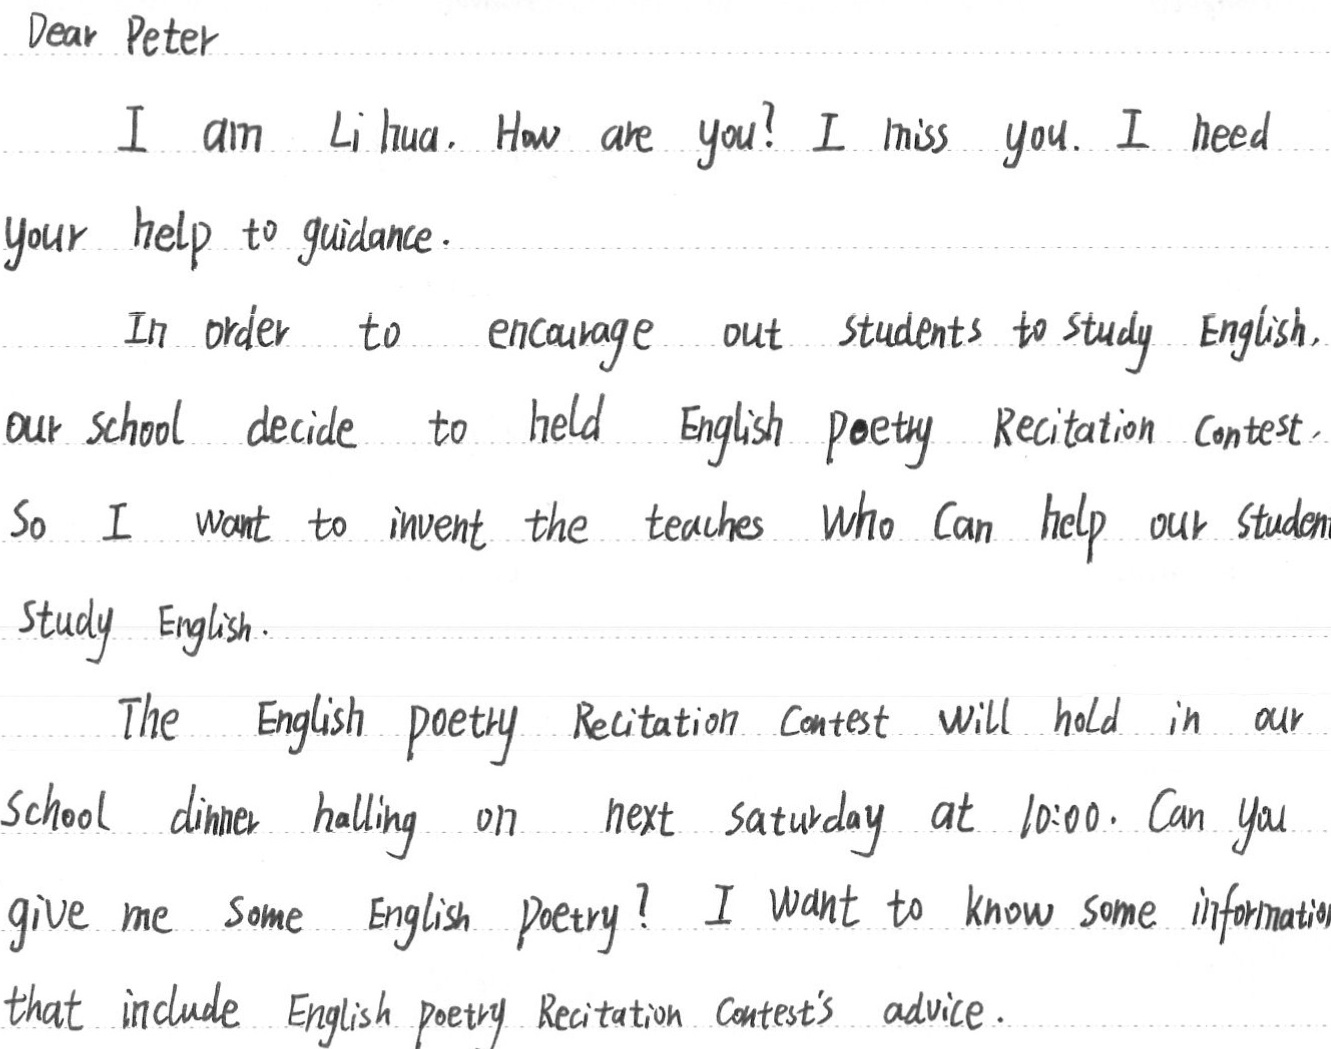 Dear Peter
I am Li hua. How are you? I miss you. I need
your help to guidance.
In order to encourage out students to study English,
our school decide to held English poetry Recitation Contest.
So I want to invent the teaches who can help our student
study English.
The English poetry Recitation Contest will hold in our
school dinner halling on next saturday at 10:00. Can you
give me some English poetry? I want to know some information
that include English poetry Recitation Contest's advice.